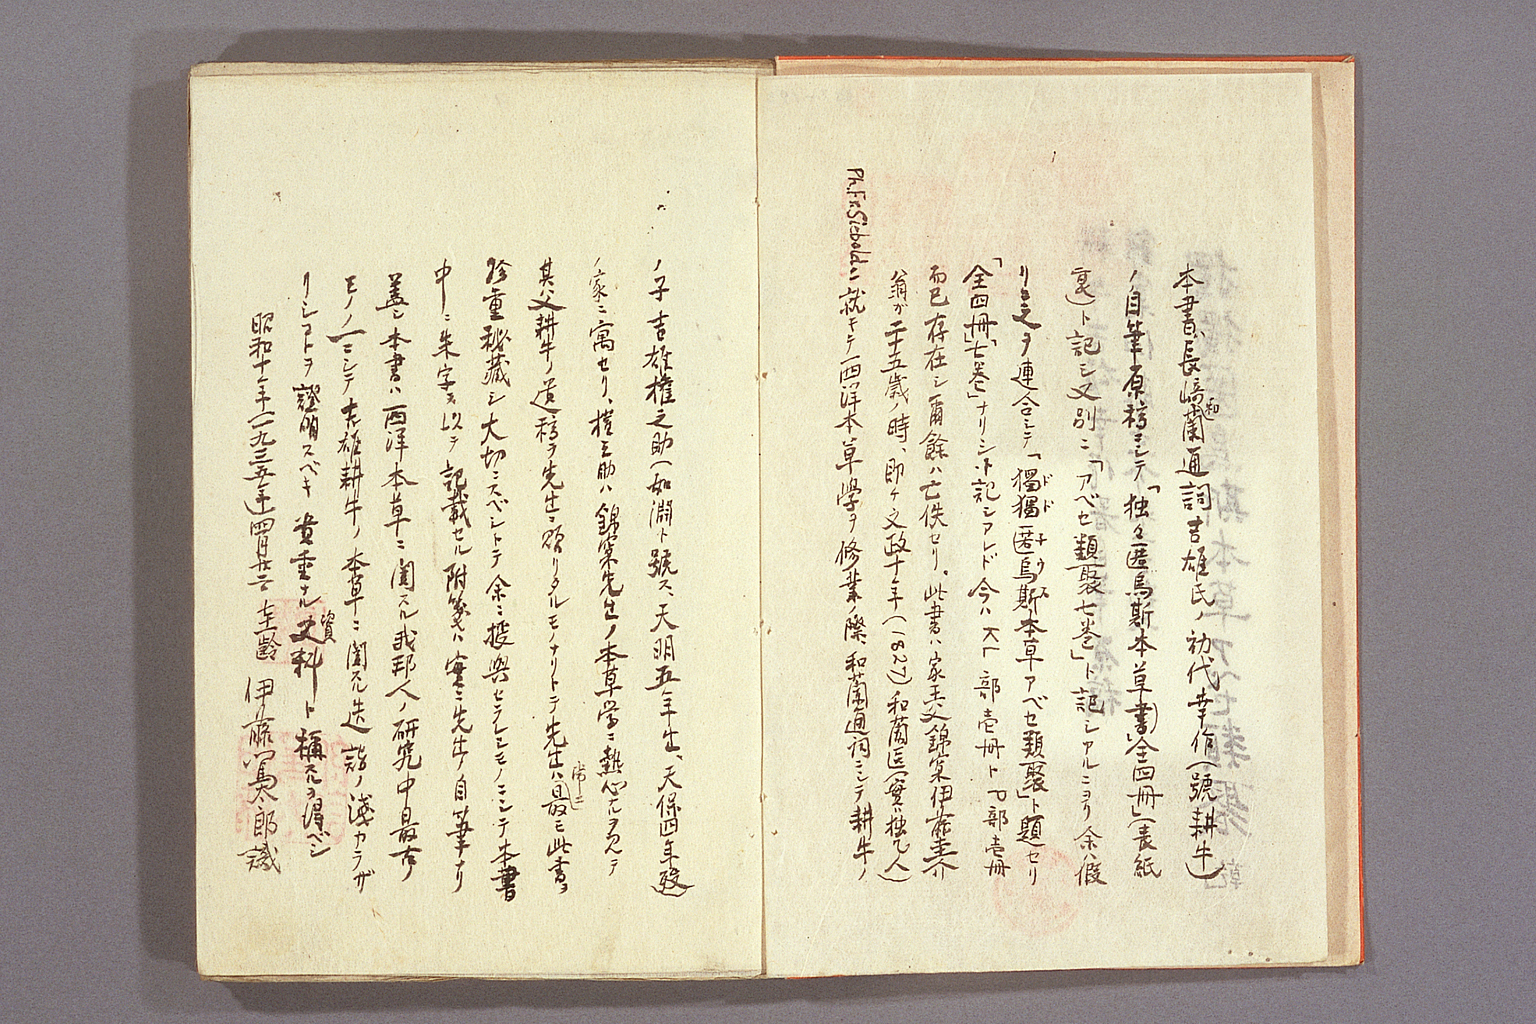 本書ハ長崎和蘭通詞吉雄氏ノ初代幸作(號耕牛)
ノ自筆原稿ニシテ「独々匿烏斯本草書」全四冊」(表紙
裏)ト記シ又別ニ「アベセ類聚七巻」ト記シアルニヨリ余ハ假
リニ之ヲ連合シテ「獨獨匿烏斯本草アベセ類聚」ト題セリ
ドドナウス
「全四冊」「七巻」ナリシト記シアレド今ハKL部壱冊トP部壱冊
而已存在シ爾餘ハ亡佚セリ。此書ハ家王父錦窠伊藤圭介
翁ガ二十五歳ノ時、即ケ文政十年(1827)和蘭医(實ハ独乙人)
Ph. Fr. Sieboldニ就キテ西洋本草學ヲ修業ノ際、和蘭通詞ニシテ耕牛ノ
ノ子吉雄権之助(如淵ト號ス、天明五年生、天保四年歿)
ノ家ニ寓セリ、権之助ハ錦窠先生ノ本草学ニ熱心ナルヲ見テ
其父耕牛ノ遺稿ヲ先生ニ贈リタルモノナリトテ先生ハ最モ此書ヲ
常ニ
珍重秘藏シ大切ニスベシトテ余ニ授與セラレシモノニシテ本書
中ニ朱字ヲ以テ記載セル附箋ハ實ニ先生ノ自筆ナリ
蓋シ本書ハ西洋本草ニ関スル我邦人ノ研究中最古ノ
モノノ一ニシテ吉雄耕牛ノ本草ニ関スル造詣ノ淺カラザ
リシコトヲ證明スベキ貴重ナル史料ト稱スルヲ得ベシ
資
昭和十年一九三五年四月廿二 圭齡 伊藤篤太郎識